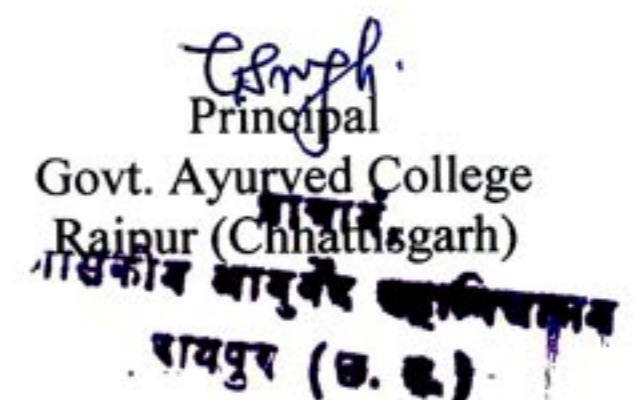 Principal
Govt. Ayurved College
प्राचार्य,
Raipur (Chhattisgarh)
शासकीय आयुर्वेद महाविद्यालय
रायपुर (छ. ग.)